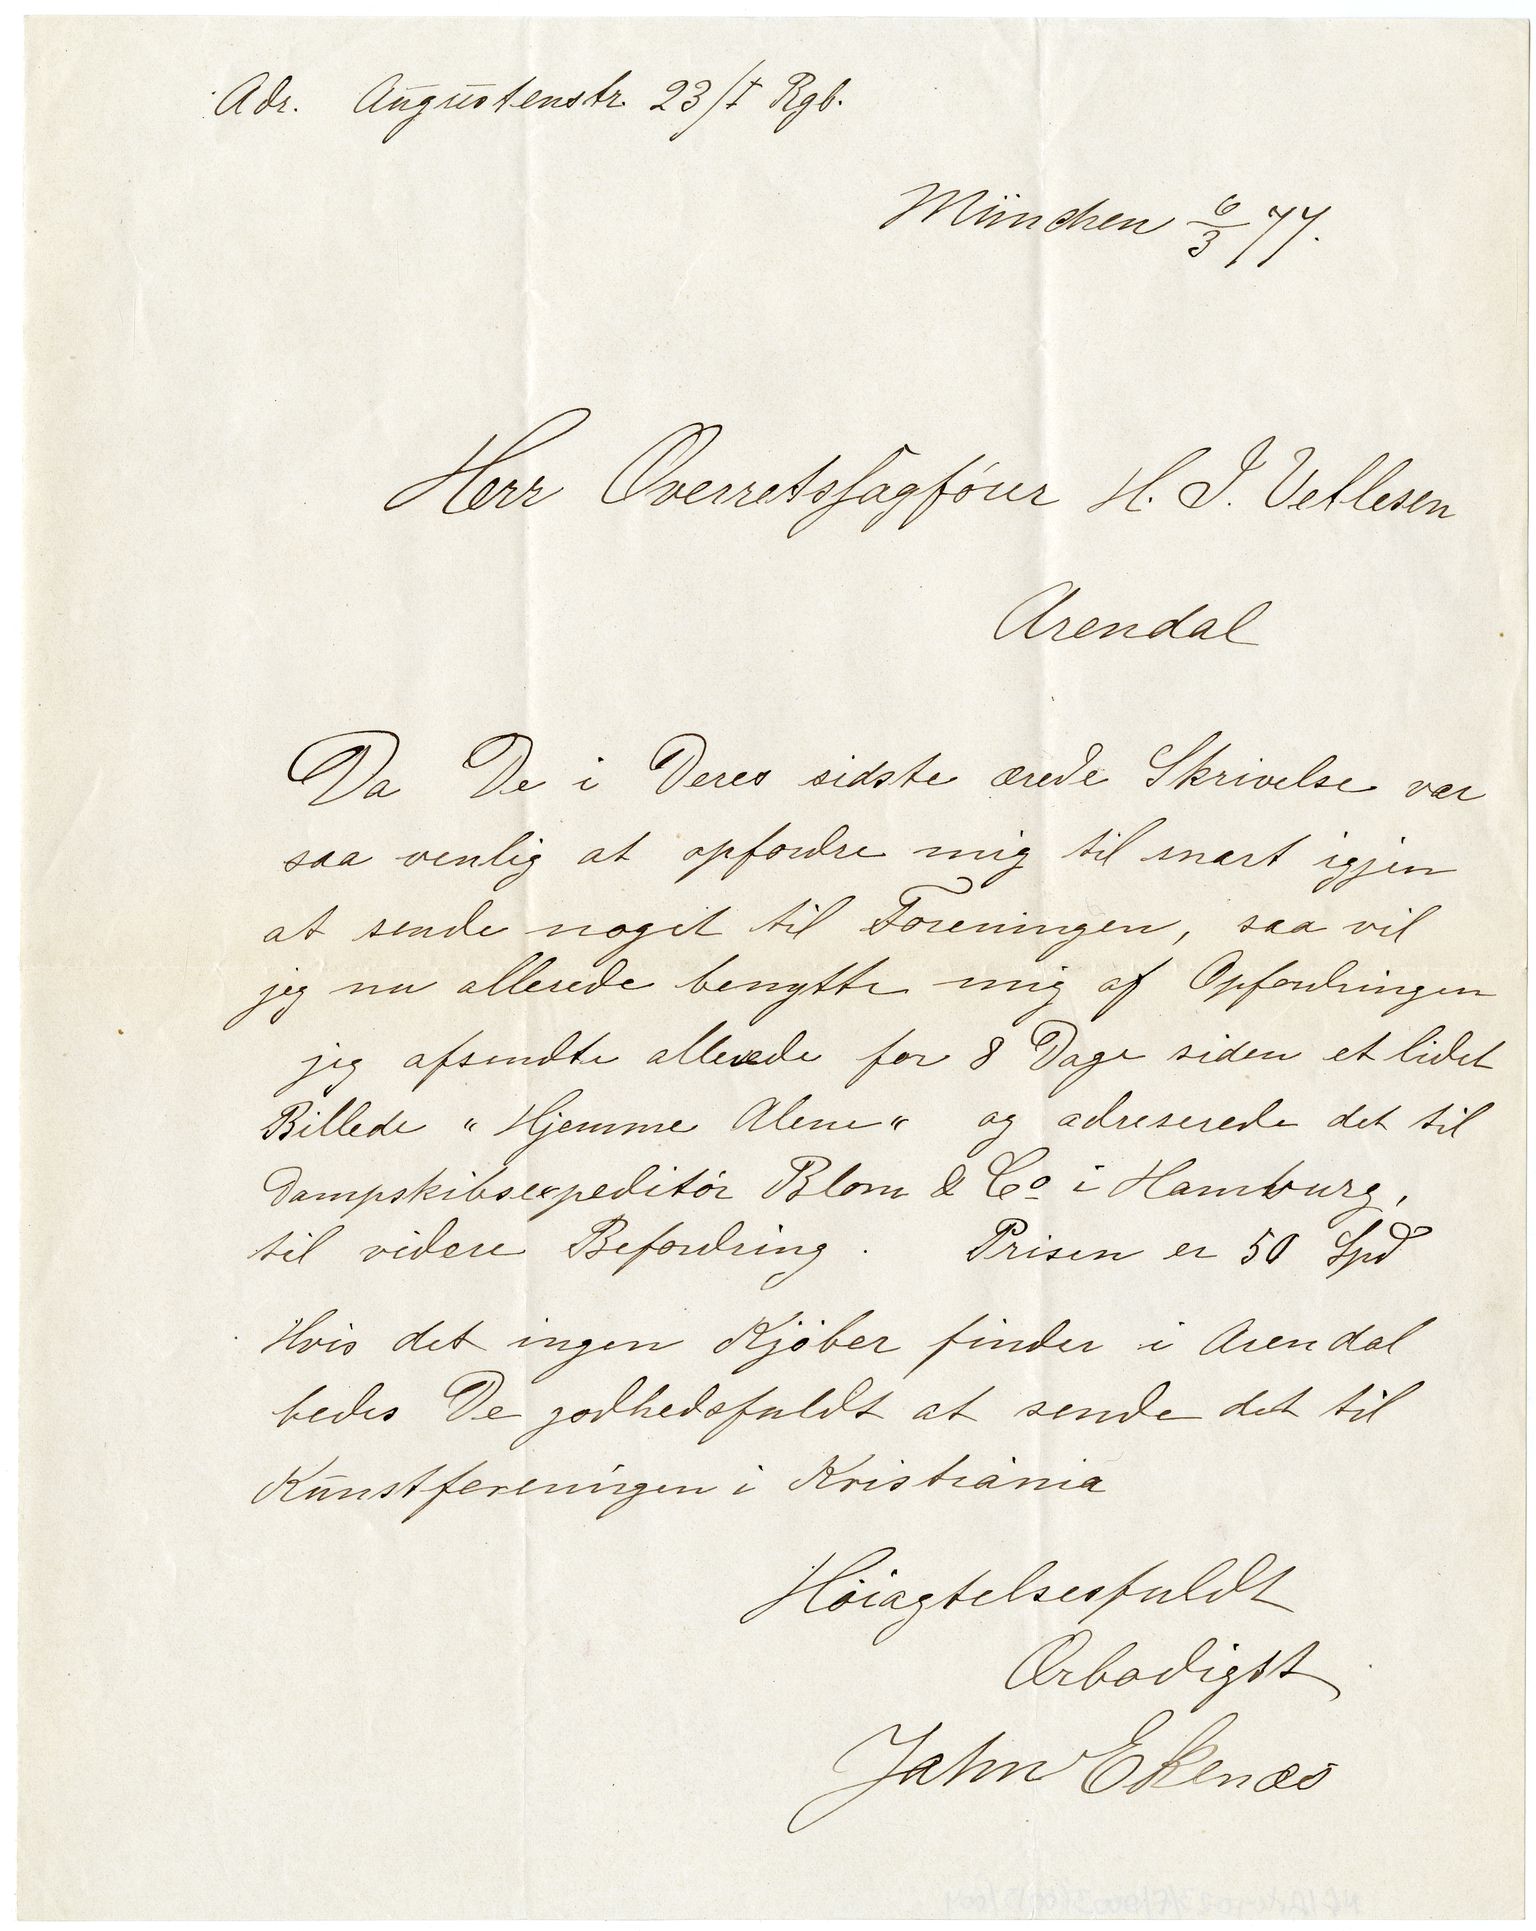 Adr. Augustenstr. 23/I Rgb.
München 6/3 77.
Herr Overretssagfórer H. J. Vetlesen
Arendal
Da De i Deres sidste ærede Skrivelse var
saa venlig at opfordre mig til snart igjen
at sende noget til Foreningen, saa vil
jeg nu allerede benytte mig af Opfordringen
jeg afsendte allerede for 8 Dage siden et lidet
Billede "Hjemme Alene" og adreserede det til
Dampskibsexpeditór Blom & Co i Hamburg,
til videre Befordring. Prisen er 50 Spd
Hvis det ingen Kjóber finder i Arendal
bedes De godhedsfuldt at sende det til
Kunstforeningen i Kristiania
Hóiagtelsesfuldt
Ærbødigst
Jahn Ekenæs